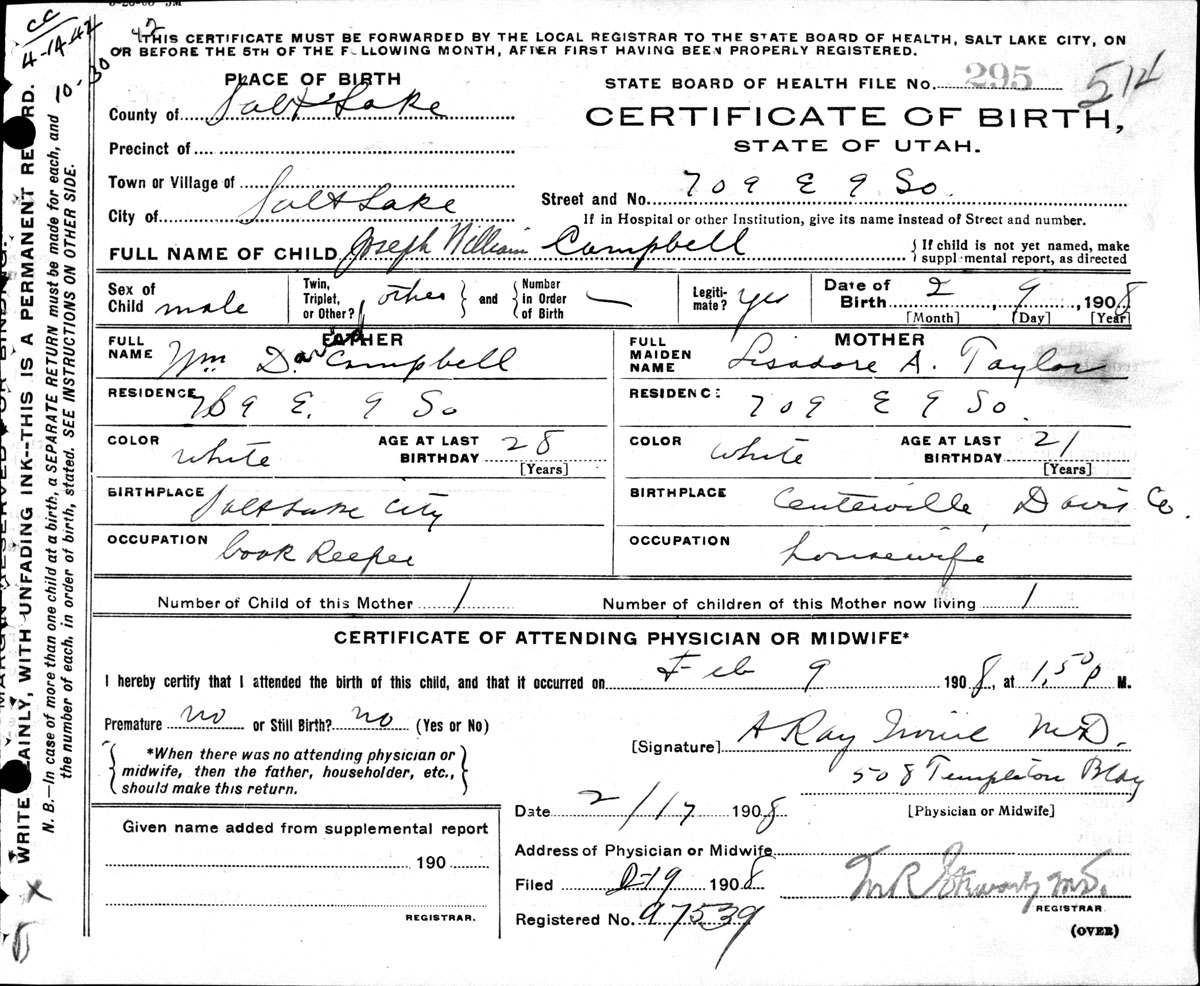 cc
4-14-42
10-30
42
THIS CERTIFICATE MUST BE FORWARDED BY THE LOCAL REGISTRAR TO THE STATE BOARD OF HEALTH, SALT LAKE CITY, ON
OR BEFORE THE 5TH OF THE F LLOWING MONTH, AFTER FIRST HAVING BEEN PROPERLY REGISTERED.
PLACE OF BIRTH
STATE BOARD OF HEALTH FILE No. 295
514
County of Salt Lake
CERTIFICATE OF BIRTH,
Precinct of
STATE OF UTAH.
Town or Village of
Street and No. 709 E 9 So.
City of Salt Lake
If in Hospital or other Institution, give its name instead of Street and number.
FULL NAME OF CHILD Joseph William Campbell
{ If child is not yet named, make
supplemental report, as directed
Sex of Child male
Twin, Triplet, or Other? { other } and { Number in Order of Birth
Legiti-mate? yes
Date of Birth 2 9, 1908
[Month] [Day] [Year]
FATHER
MOTHER
FULL NAME Wm David Campbell
FULL MAIDEN NAME Lisadore A. Taylor
RESIDENCE 709 E. 9 So
RESIDENCE 709 E 9 So.
COLOR white AGE AT LAST BIRTHDAY 28
[Years]
COLOR white AGE AT LAST BIRTHDAY 21
[Years]
BIRTHPLACE Salt Lake City
BIRTHPLACE Centerville, Davis Co.
OCCUPATION book keeper
OCCUPATION housewife
Number of Child of this Mother 1
Number of children of this Mother now living 1
CERTIFICATE OF ATTENDING PHYSICIAN OR MIDWIFE*
I hereby certify that I attended the birth of this child, and that it occurred on Feb 9 1908, at 1,50 p M.
Premature no or Still Birth? no (Yes or No)
{ *When there was no attending physician or
midwife, then the father, householder, etc.,
should make this return. }
[Signature] A Ray Irvine M.D.
508 Templeton Bldg
[Physician or Midwife]
Date 2/17 1908
Given name added from supplemental report
190
REGISTRAR.
Address of Physician or Midwife
Filed 2-19 1908
REGISTRAR
Registered No. 97539
(OVER)
WRITE LAINLY, WITH UNFADING INK--THIS IS A PERMANENT RE RD.
N. B.—In case of more than one child at a birth, a SEPARATE RETURN must be made for each, and
the number of each, in order of birth, stated. SEE INSTRUCTIONS ON OTHER SIDE.